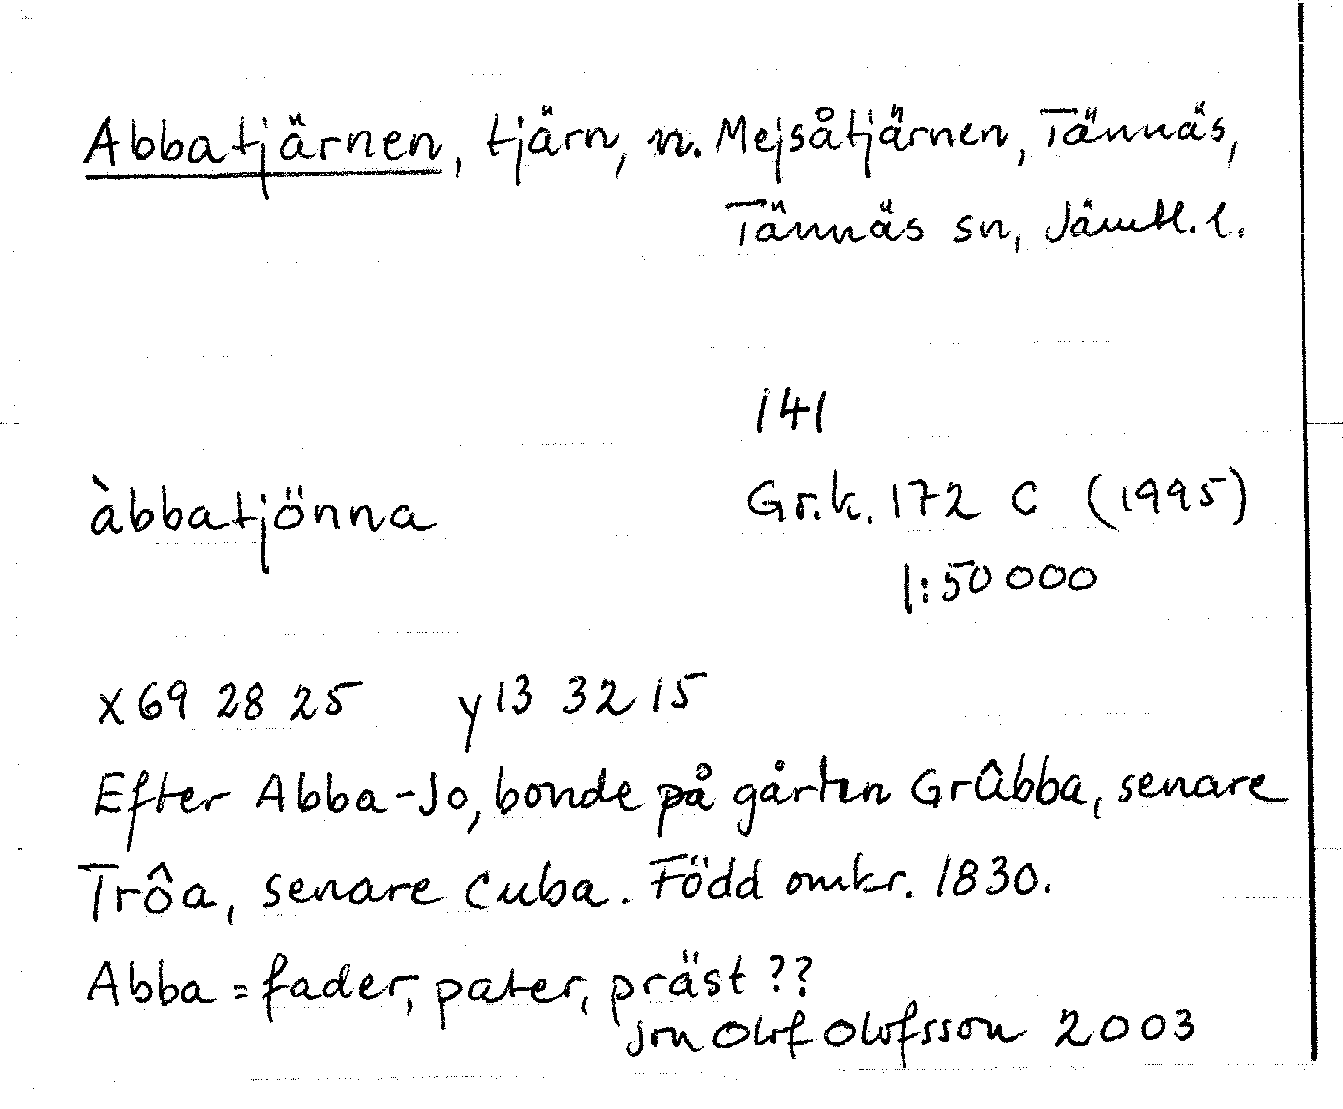 Abbatjärnen, tjärn, n. Mejsåtjärnen, Tännäs,
Tännäs sn, Jämtl. l.
141
àbbatjönna
Gr.k. 172 C (1995)
1:50 000
x 69 28 25 y 13 32 15
Efter Abba-Jo, bonde på gården Grûbba, senare
Trôa, senare Cuba. Född omkr. 1830.
Abba = fader, pater, präst ??
Jon Olof Olofsson 2003